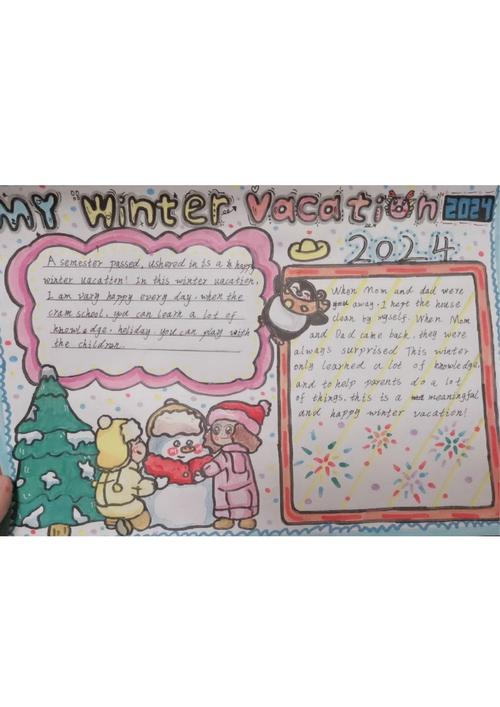 MY Winter Vacation 2024
2024
A semester passed, ushered in is a happy
winter vacation! In this winter vacation,
I am vary happy every day. when the
cram school, you can learn a lot of
knowledge. holiday you can play with
the children.
When Mom and dad were
away, I kept the house
clean by myself. When Mom
and Dad came back, they were
always surprised This winter
only learned a lot of knowledge,
and to help parents do a lot
of things. this is a meaningful
and happy winter vacation!